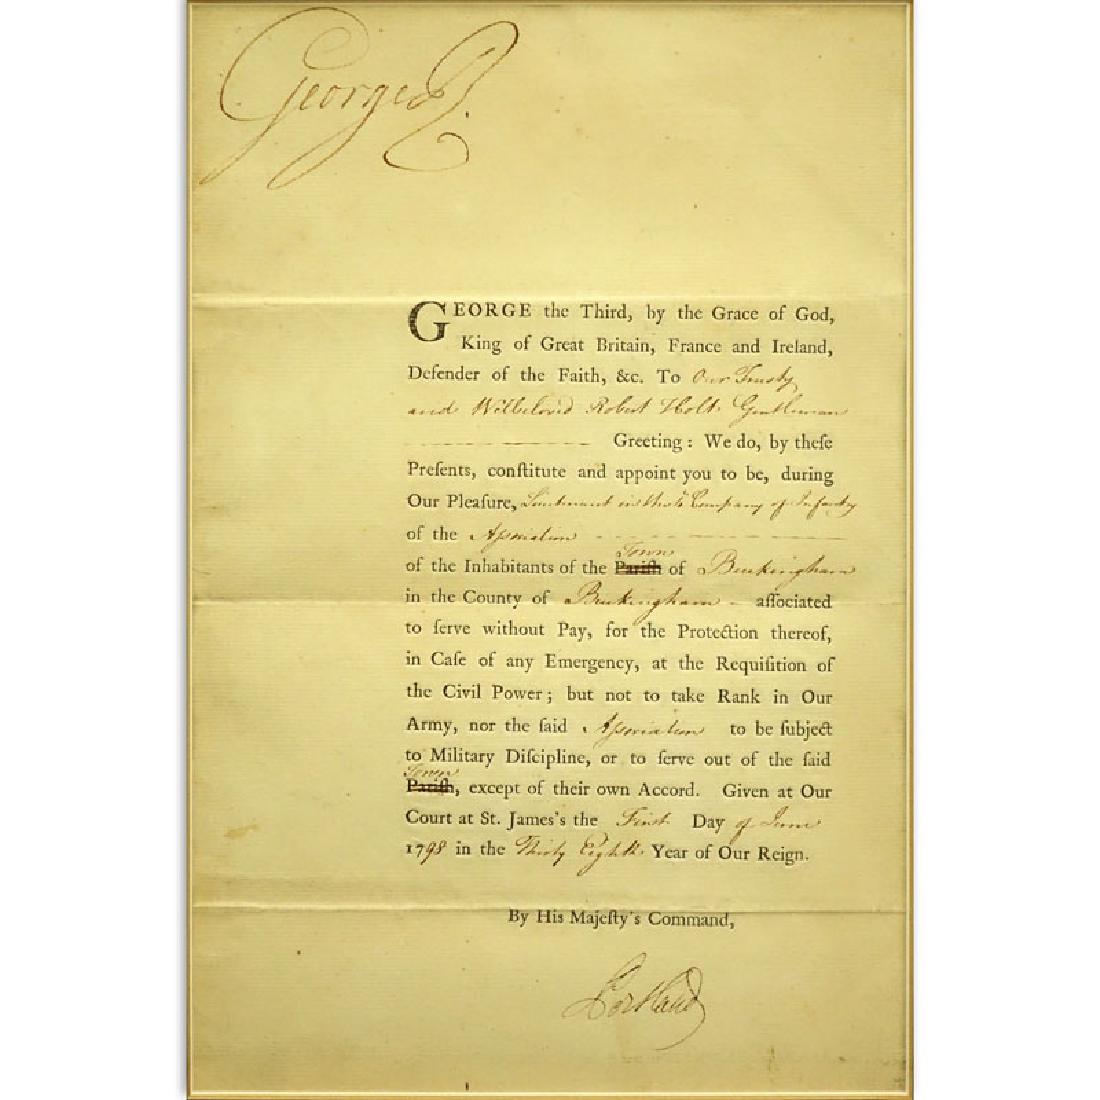 George R.
GEORGE the Third, by the Grace of God,
King of Great Britain, France and Ireland,
Defender of the Faith, &c. To Our Trusty
and Welbeloved Robert Holt Gentleman
Greeting: We do, by theſe
Preſents, conſtitute and appoint you to be, during
Our Pleaſure, Lieutenant in the Company of Infantry
of the Aſsociation
Town
of the Inhabitants of the Pariſh of Buckingham
in the County of Buckingham aſſociated
to ſerve without Pay, for the Protection thereof,
in Caſe of any Emergency, at the Requiſition of
the Civil Power; but not to take Rank in Our
Army, nor the ſaid Aſsociation to be ſubject
to Military Diſcipline, or to ſerve out of the ſaid
Town
Pariſh, except of their own Accord. Given at Our
Court at St. James's the First Day of June
1798 in the Thirty Eighth Year of Our Reign.
By His Majeſty's Command,
Portland